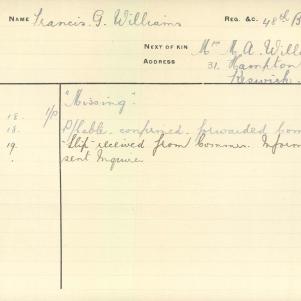 NAME Francis. G. Williams REG. &C. 48th B
NEXT OF KIN Mrs M. A. Will
ADDRESS 31. Hampton
Keswick.
"Missing".
18. P/table confirmed. forwarded
19. "Slip" received from Commn. Inform
sent Inquirer